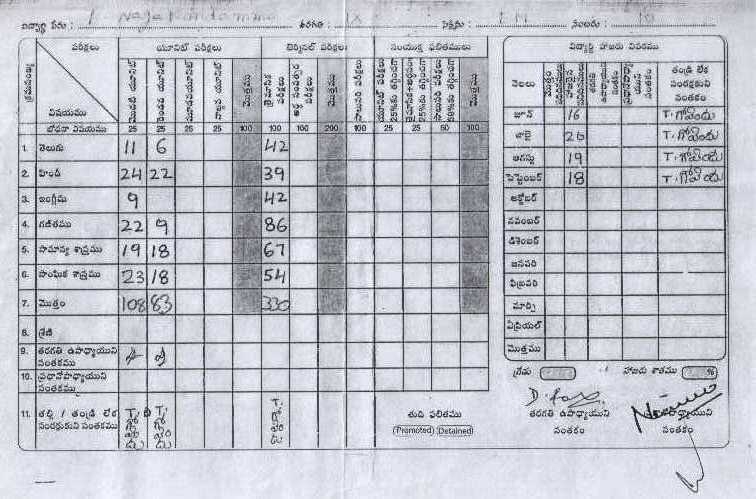 విద్యార్థి పేరు : T. Nagakantamma తరగతి : IX సెక్షను : EM నంబరు : 16
క్రమసంఖ్య పరీక్షలు యూనిట్ పరీక్షలు టెర్మినల్ పరీక్షలు సంయుక్త ఫలితములు
విషయము మొదటి యూనిట్ రెండవ యూనిట్ మూడవ యూనిట్ నాల్గవ యూనిట్ మొత్తము త్రైమాసిక పరీక్షలు అర్ధ సంవత్సర పరీక్షలు మొత్తము సాలుసరి పరీక్షలు మొత్తము
బోధనా విషయము 25 25 25 25 100 100 100 200 100 25 25 50 100
1. తెలుగు 11 6 42
2. హిందీ 24 22 39
3. ఇంగ్లీషు 9 42
4. గణితము 22 9 86
5. సామాన్య శాస్త్రము 19 18 67
6. సాంఘిక శాస్త్రము 23 18 54
7. మొత్తం 108 83 330
8. శ్రేణి
9. తరగతి ఉపాధ్యాయుని సంతకము
10. ప్రధానోపాధ్యాయుని సంతకము
11. తల్లి / తండ్రి లేక సంరక్షకుని సంతకము
తుది ఫలితము
(Promoted) (Detained)
విద్యార్థి హాజరు వివరము
నెలలు తండ్రి లేక సంరక్షకుని సంతకము
జూన్ 16 T. గోవిందు
జూలై 20 T. గోవిందు
ఆగస్టు 19 T. గోవిందు
సెప్టెంబర్ 18 T. గోవిందు
అక్టోబర్
నవంబర్
డిశెంబర్
జనవరి
ఫిబ్రవరి
మార్చి
ఏప్రియల్
మొత్తము
గ్రేడు హాజరు శాతము %
తరగతి ఉపాధ్యాయుని సంతకం
సంతకం